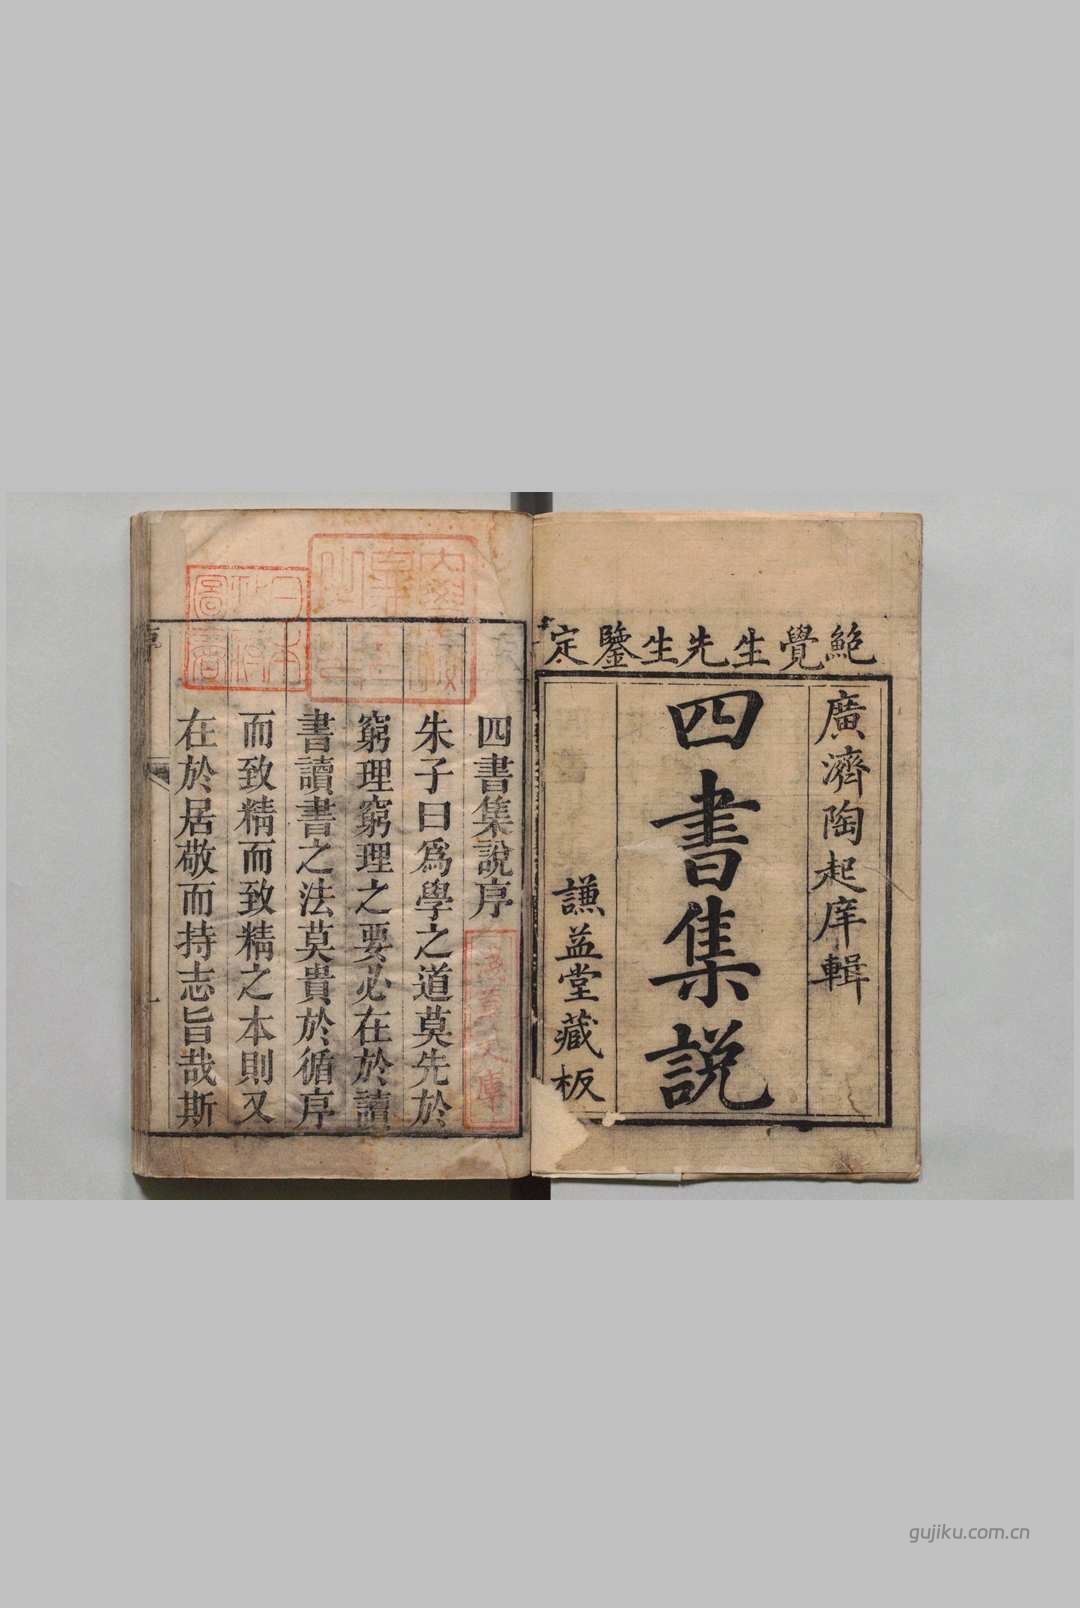 鮑覺生先生鑒定
廣濟陶起庠輯
四書集說
謙益堂藏板
四書集說序
朱子曰爲學之道莫先於
窮理窮理之要必在於讀
書讀書之法莫貴於循序
而致精而致精之本則又
在於居敬而持志旨哉斯
序
一
日本
政府
圖書
gujiku.com.cn